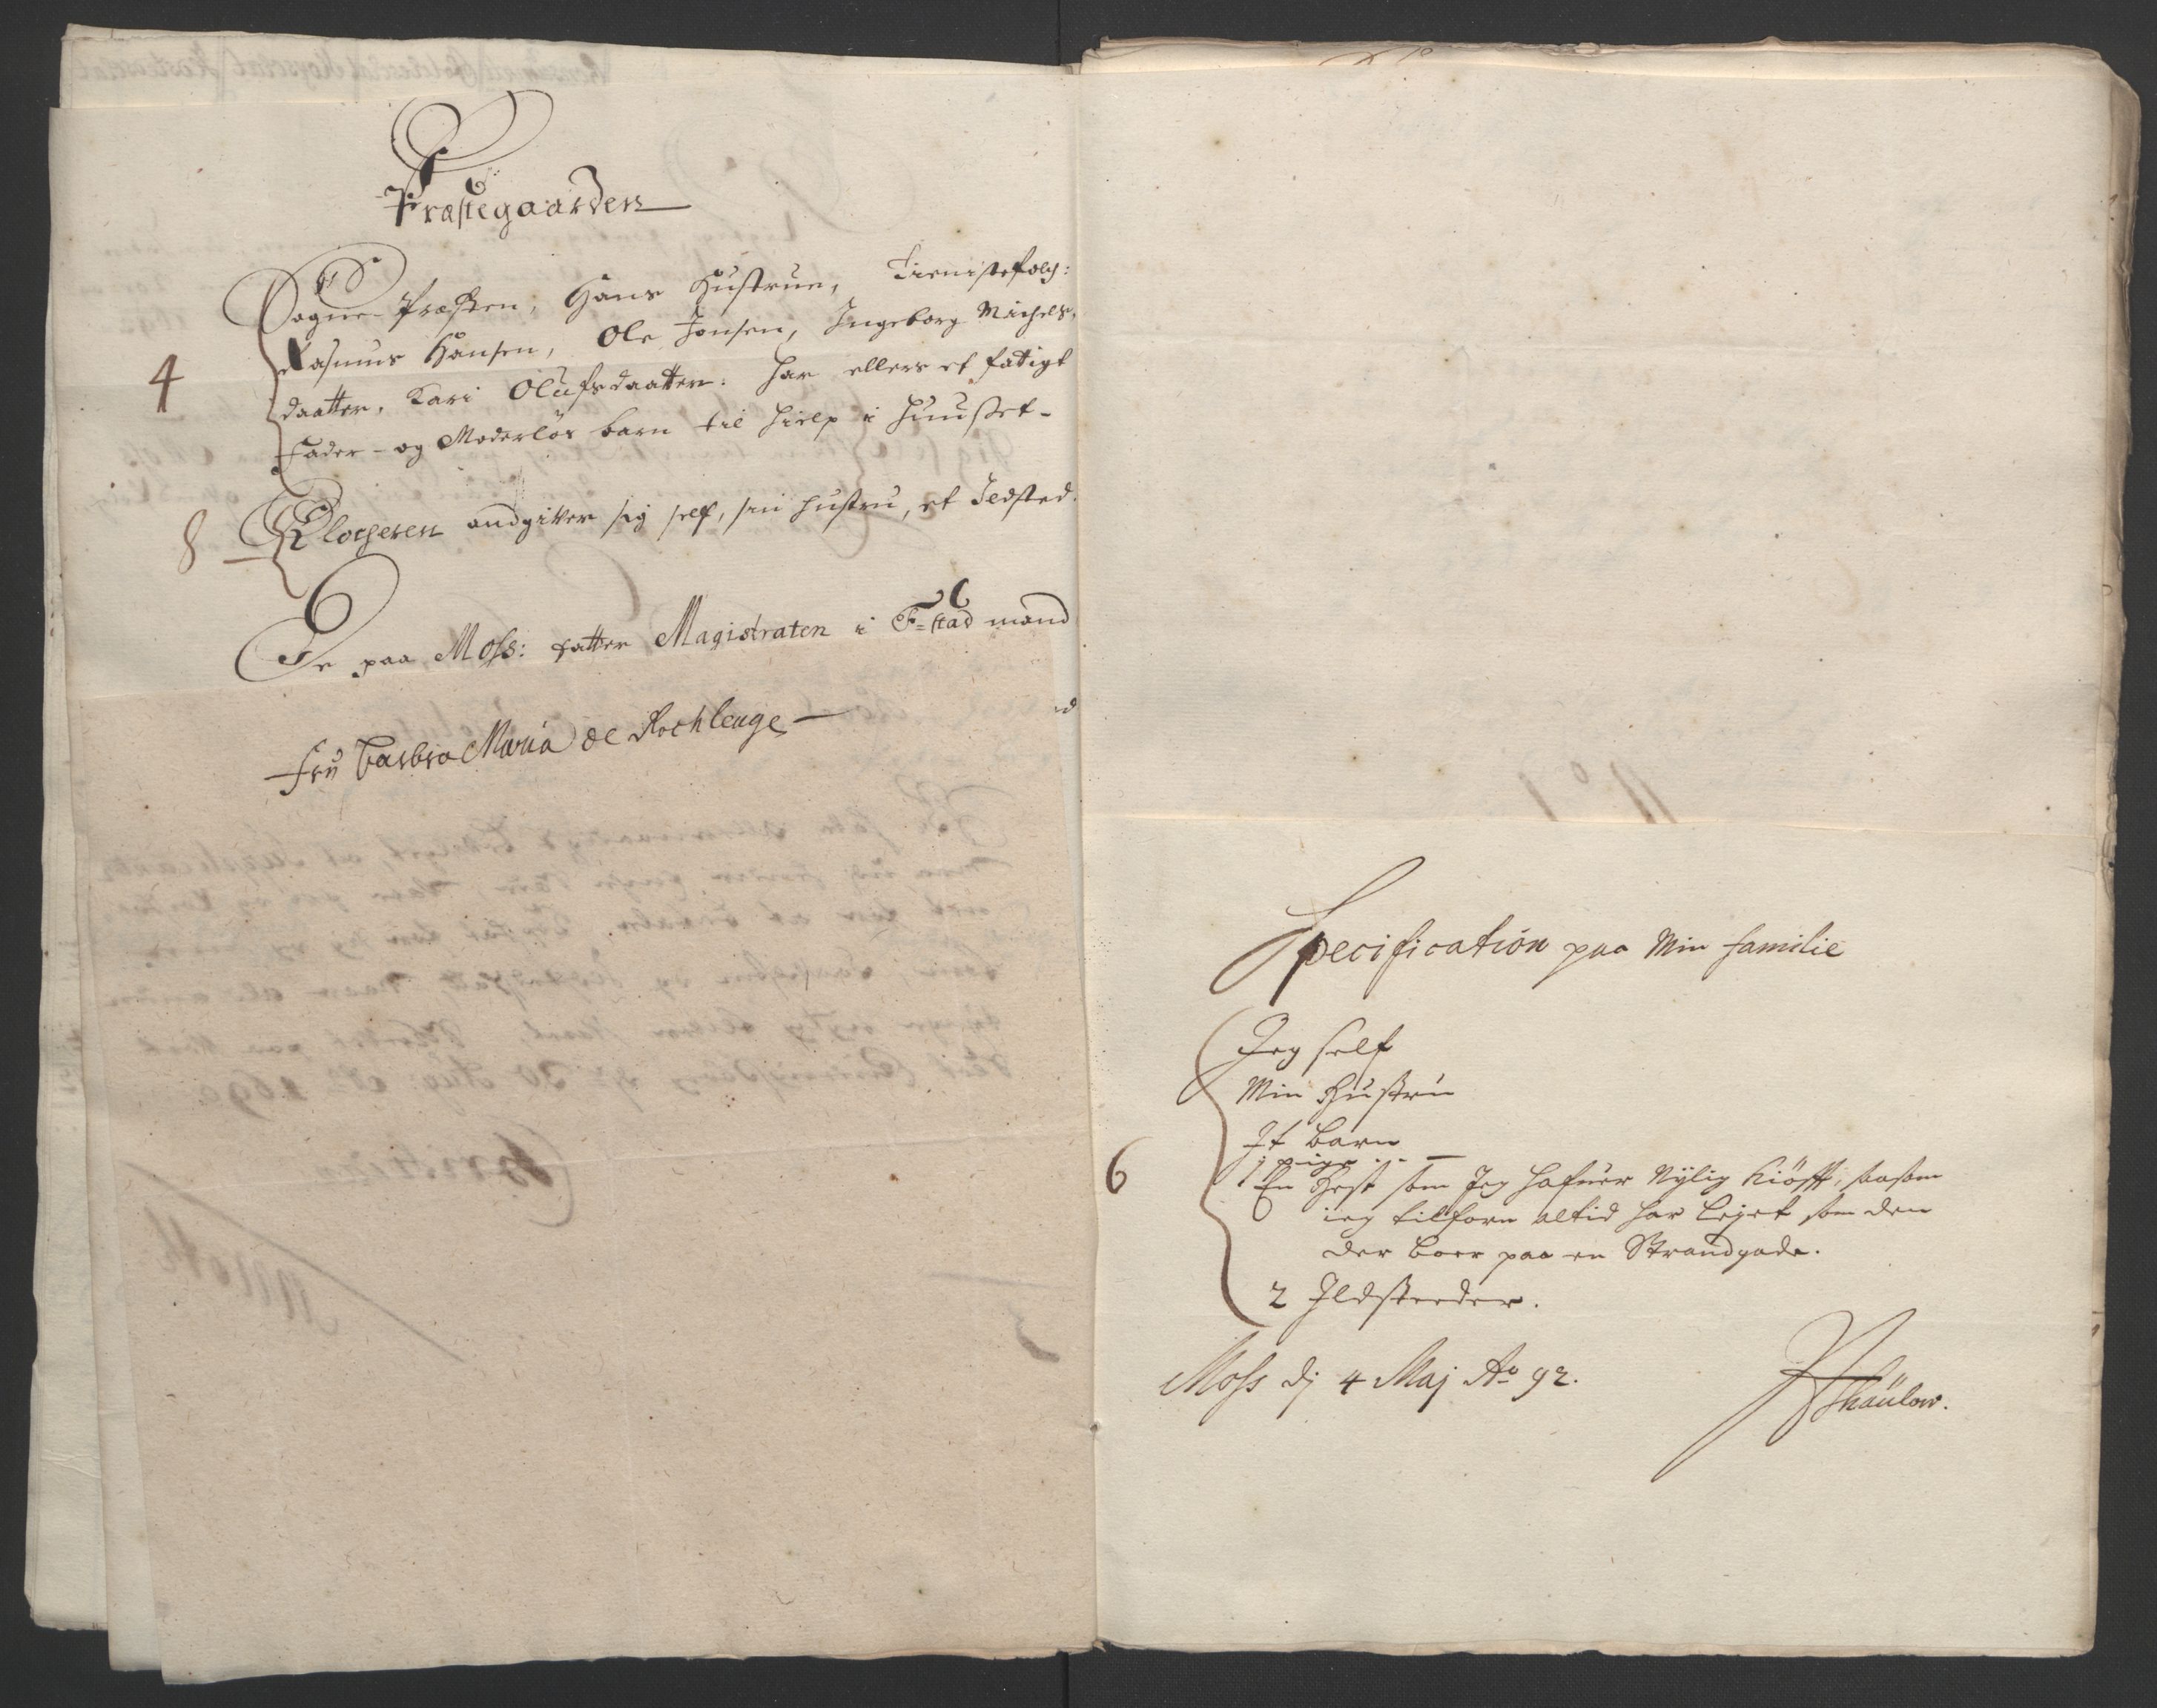 Præstegaarden
Sogne-Præsten, Hans Hustrue, Tienistefolch:
4 Rasmus Hansen, Ole Jonsen, Ingeborg Michels-
daatter, Kari Olufsdaatter. har ellers et fatigt
Fader- og Moderløs barn til hielp i huuset-
8 Klocheren andgiver sig self, sin hustru, et Ildsted.
De paa Moss: Magistraten i F-stad
fru barbra Maria de
Specification paa Min familie
Jeg self
Min Hustru
It barn
1 pige
6 En Hest som Jeg hafuer Nylig Kiöfft, saasom
ieg tilforn altid har lejet som den
der boer paa en Strandgade.
2 Ildsteeder.
Moss dj 4 Maj Ao 92.
Thaulow.